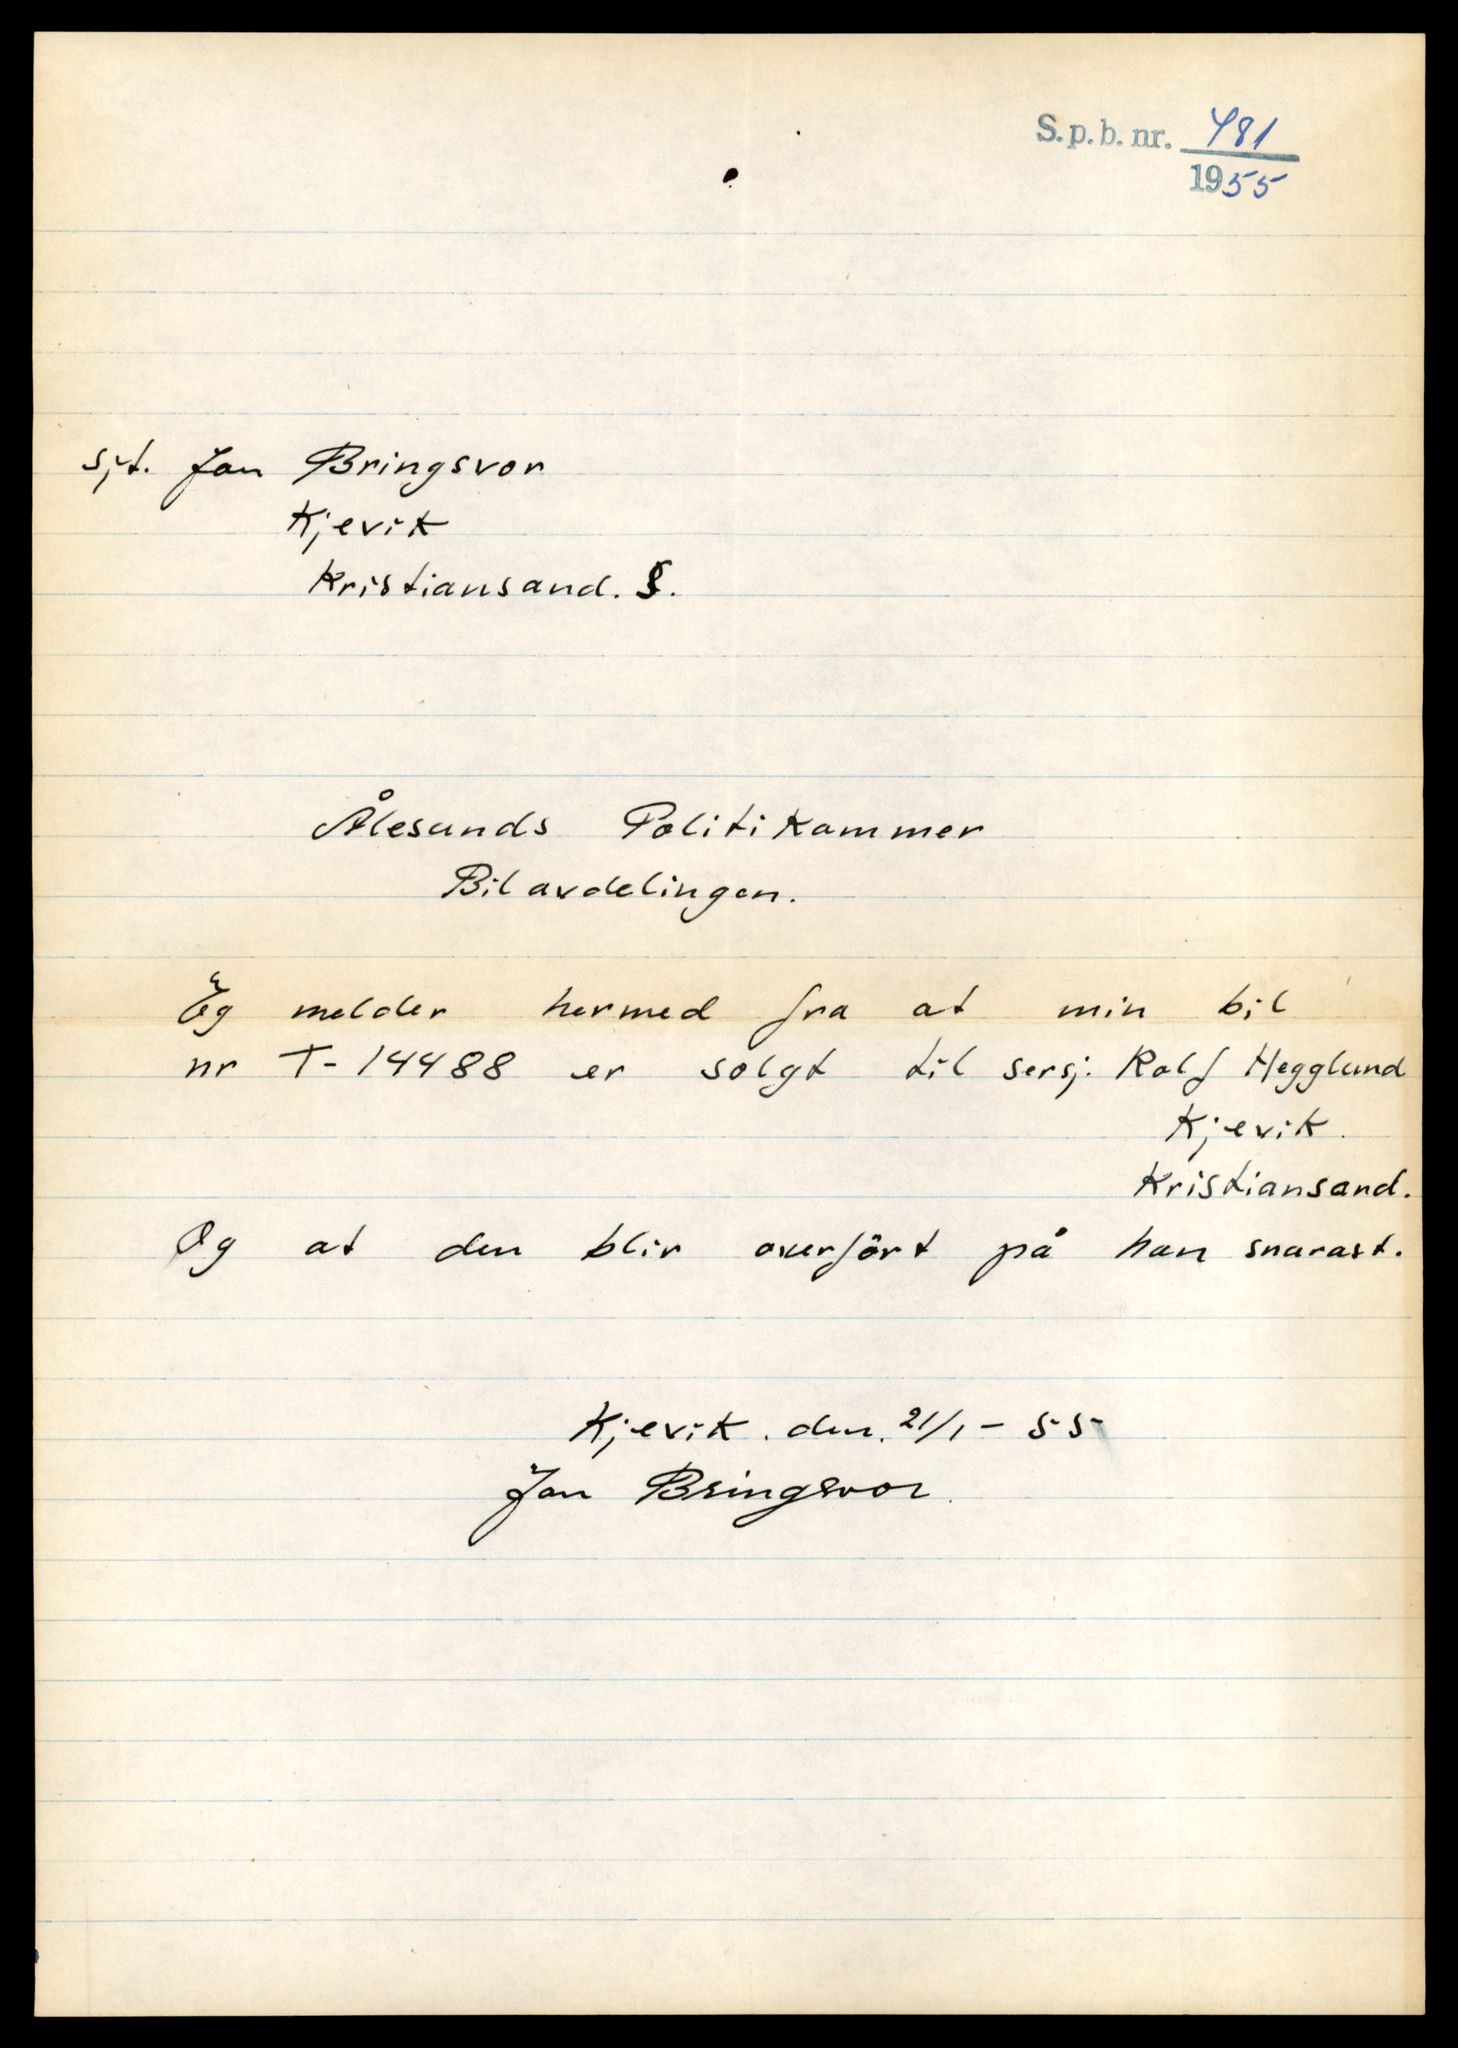 S.p.b. nr. 481
1955
Sjt. Jan Bringsvor
Kjevik
Kristiansand. S.
Ålesunds Politikammer
Bilavdelingen.
Eg melder hermed fra at min bil
nr T-14488 er solgt til sersj. Rolf Hegglund
Kjevik.
Kristiansand.
Og at den blir overfört på han snarast.
Kjevik. den. 21/1 - 55
Jan Bringsvor.